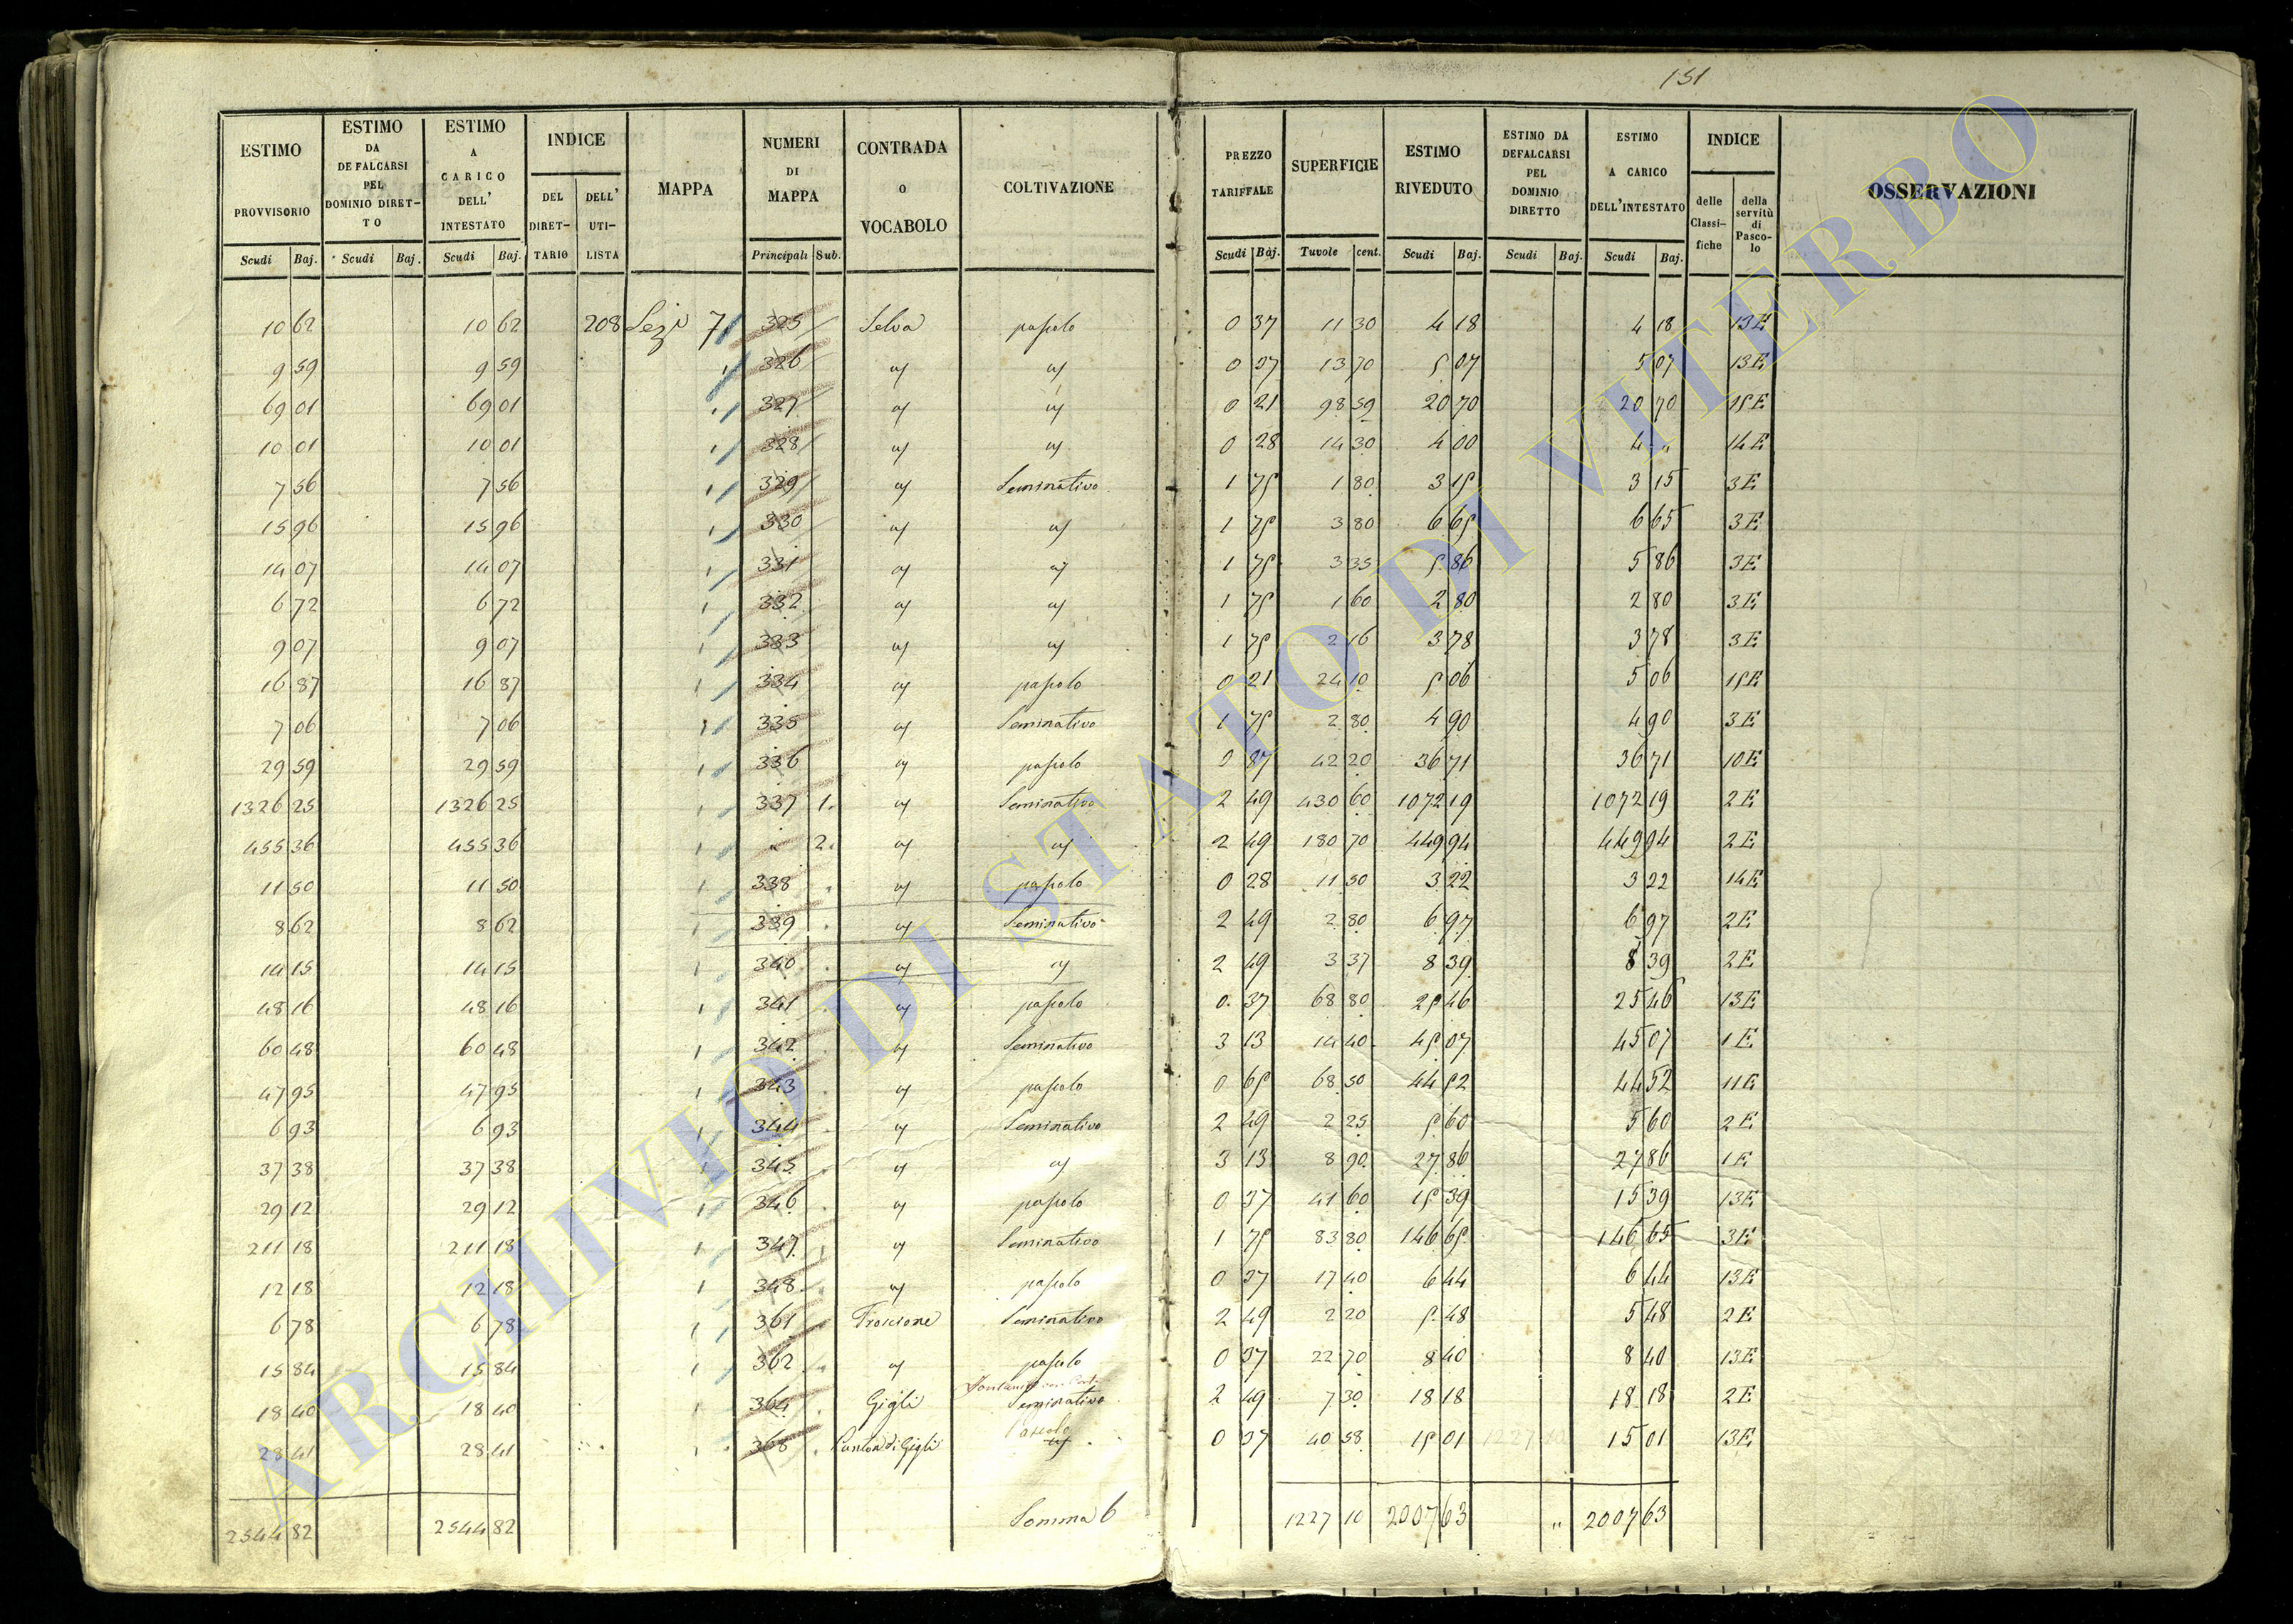 151
ESTIMO PROVVISORIO Scudi Baj.
ESTIMO DA DEFALCARSI PEL DOMINIO DIRET-TO Scudi Baj.
ESTIMO A CARICO DELL' INTESTATO Scudi Baj.
INDICE DEL DIRET-TARIO DELL' UTI-LISTA
MAPPA
NUMERI DI MAPPA Principali Sub.
CONTRADA o VOCABOLO
COLTIVAZIONE
PREZZO TARIFFALE Scudi Baj.
SUPERFICIE Tuvole cent.
ESTIMO RIVEDUTO Scudi Baj.
ESTIMO DA DEFALCARSI PEL DOMINIO DIRETTO Scudi Baj.
ESTIMO A CARICO DELL'INTESTATO Scudi Baj.
INDICE delle Classi-fiche della servitù di Pasco-lo
OSSERVAZIONI
10 62 10 62 208 Sez. 7 325 Selva pascolo 0 37 11 30 4 18 4 18 13 E
9 59 9 59 326 0 37 13 70 5 07 5 07 13 E
69 01 69 01 327 0 21 98 59 20 70 20 70 15 E
10 01 10 01 328 0 28 14 30 4 00 4 " 14 E
7 56 7 56 329 Seminativo 1 75 1 80 3 15 3 15 3 E
15 96 15 96 330 1 75 3 80 6 65 6 65 3 E
14 07 14 07 331 1 75 3 35 5 86 5 86 3 E
6 72 6 72 332 1 75 1 60 2 80 2 80 3 E
9 07 9 07 333 1 75 2 16 3 78 3 78 3 E
16 87 16 87 334 pascolo 0 21 24 10 5 06 5 06 15 E
7 06 7 06 335 Seminativo 1 75 2 80 4 90 4 90 3 E
29 59 29 59 336 pascolo 0 87 42 20 36 71 36 71 10 E
1326 25 1326 25 337 1. Seminativo 2 49 430 60 1072 19 1072 19 2 E
455 36 455 36 2. 2 49 180 70 449 94 449 94 2 E
11 50 11 50 338 pascolo 0 28 11 50 3 22 3 22 14 E
8 62 8 62 339 Seminativo 2 49 2 80 6 97 6 97 2 E
14 15 14 15 340 2 49 3 37 8 39 8 39 2 E
48 16 48 16 341 pascolo 0 37 68 80 25 46 25 46 13 E
60 48 60 48 342 Seminativo 3 13 14 40 45 07 45 07 1 E
47 95 47 95 343 pascolo 0 65 68 50 44 52 44 52 11 E
6 93 6 93 344 Seminativo 2 49 2 25 5 60 5 60 2 E
37 38 37 38 345 3 13 8 90 27 86 27 86 1 E
29 12 29 12 346 pascolo 0 37 41 60 15 39 15 39 13 E
211 18 211 18 347 Seminativo 1 75 83 80 146 65 146 65 3 E
12 18 12 18 348 pascolo 0 37 17 40 6 44 6 44 13 E
6 78 6 78 361 Seminativo 2 49 2 20 5 48 5 48 2 E
15 84 15 84 362 pascolo 0 37 22 70 8 40 8 40 13 E
18 40 18 40 364 Gigli Seminativo 2 49 7 30 18 18 18 18 2 E
28 41 28 41 368 di Gigli Pascolo 0 37 40 58 15 01 15 01 13 E
2544 82 2544 82 Somma 6 1227 10 2007 63 " 2007 63
ARCHIVIO DI STATO DI VITERBO